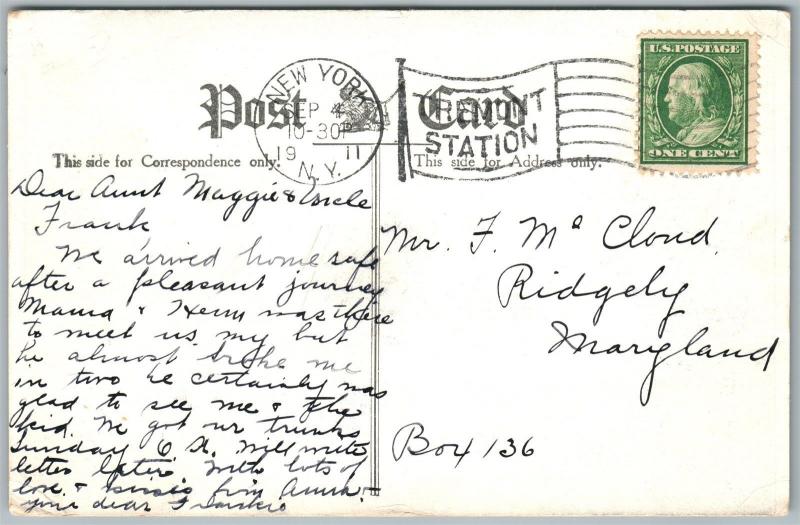 Post Card
NEW YORK
SEP 4
10-30P
19 11
N.Y.
TREMONT
STATION
U.S. POSTAGE
ONE CENT
This side for Correspondence only.
This side for Address only.
Dear Aunt Maggie & Uncle
Frank
We arrived home safe
after a pleasant journey
Mama & Herm was there
to meet us. my but
he almost broke me
in two he certainly was
glad to see me & the
kid. We got our trunks
Sunday O.K. Will write
letter later With lots of
love & kisses from Anna
your dear
Mr. F. Mc Cloud.
Ridgely
Maryland
Box 136